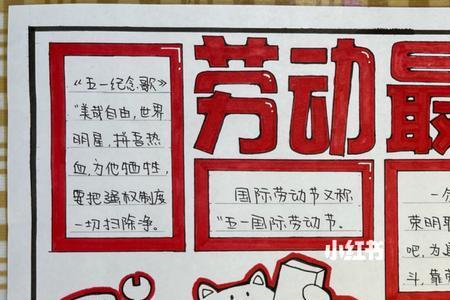 劳动最
《五一纪念歌》
"美哉自由,世界
明星,拼吾热
血,为他牺牲,
要把强权制度
一切扫除净。
国际劳动节又称
"五一国际劳动节。
一个
荣
吧,为
斗,靠劳
小红书